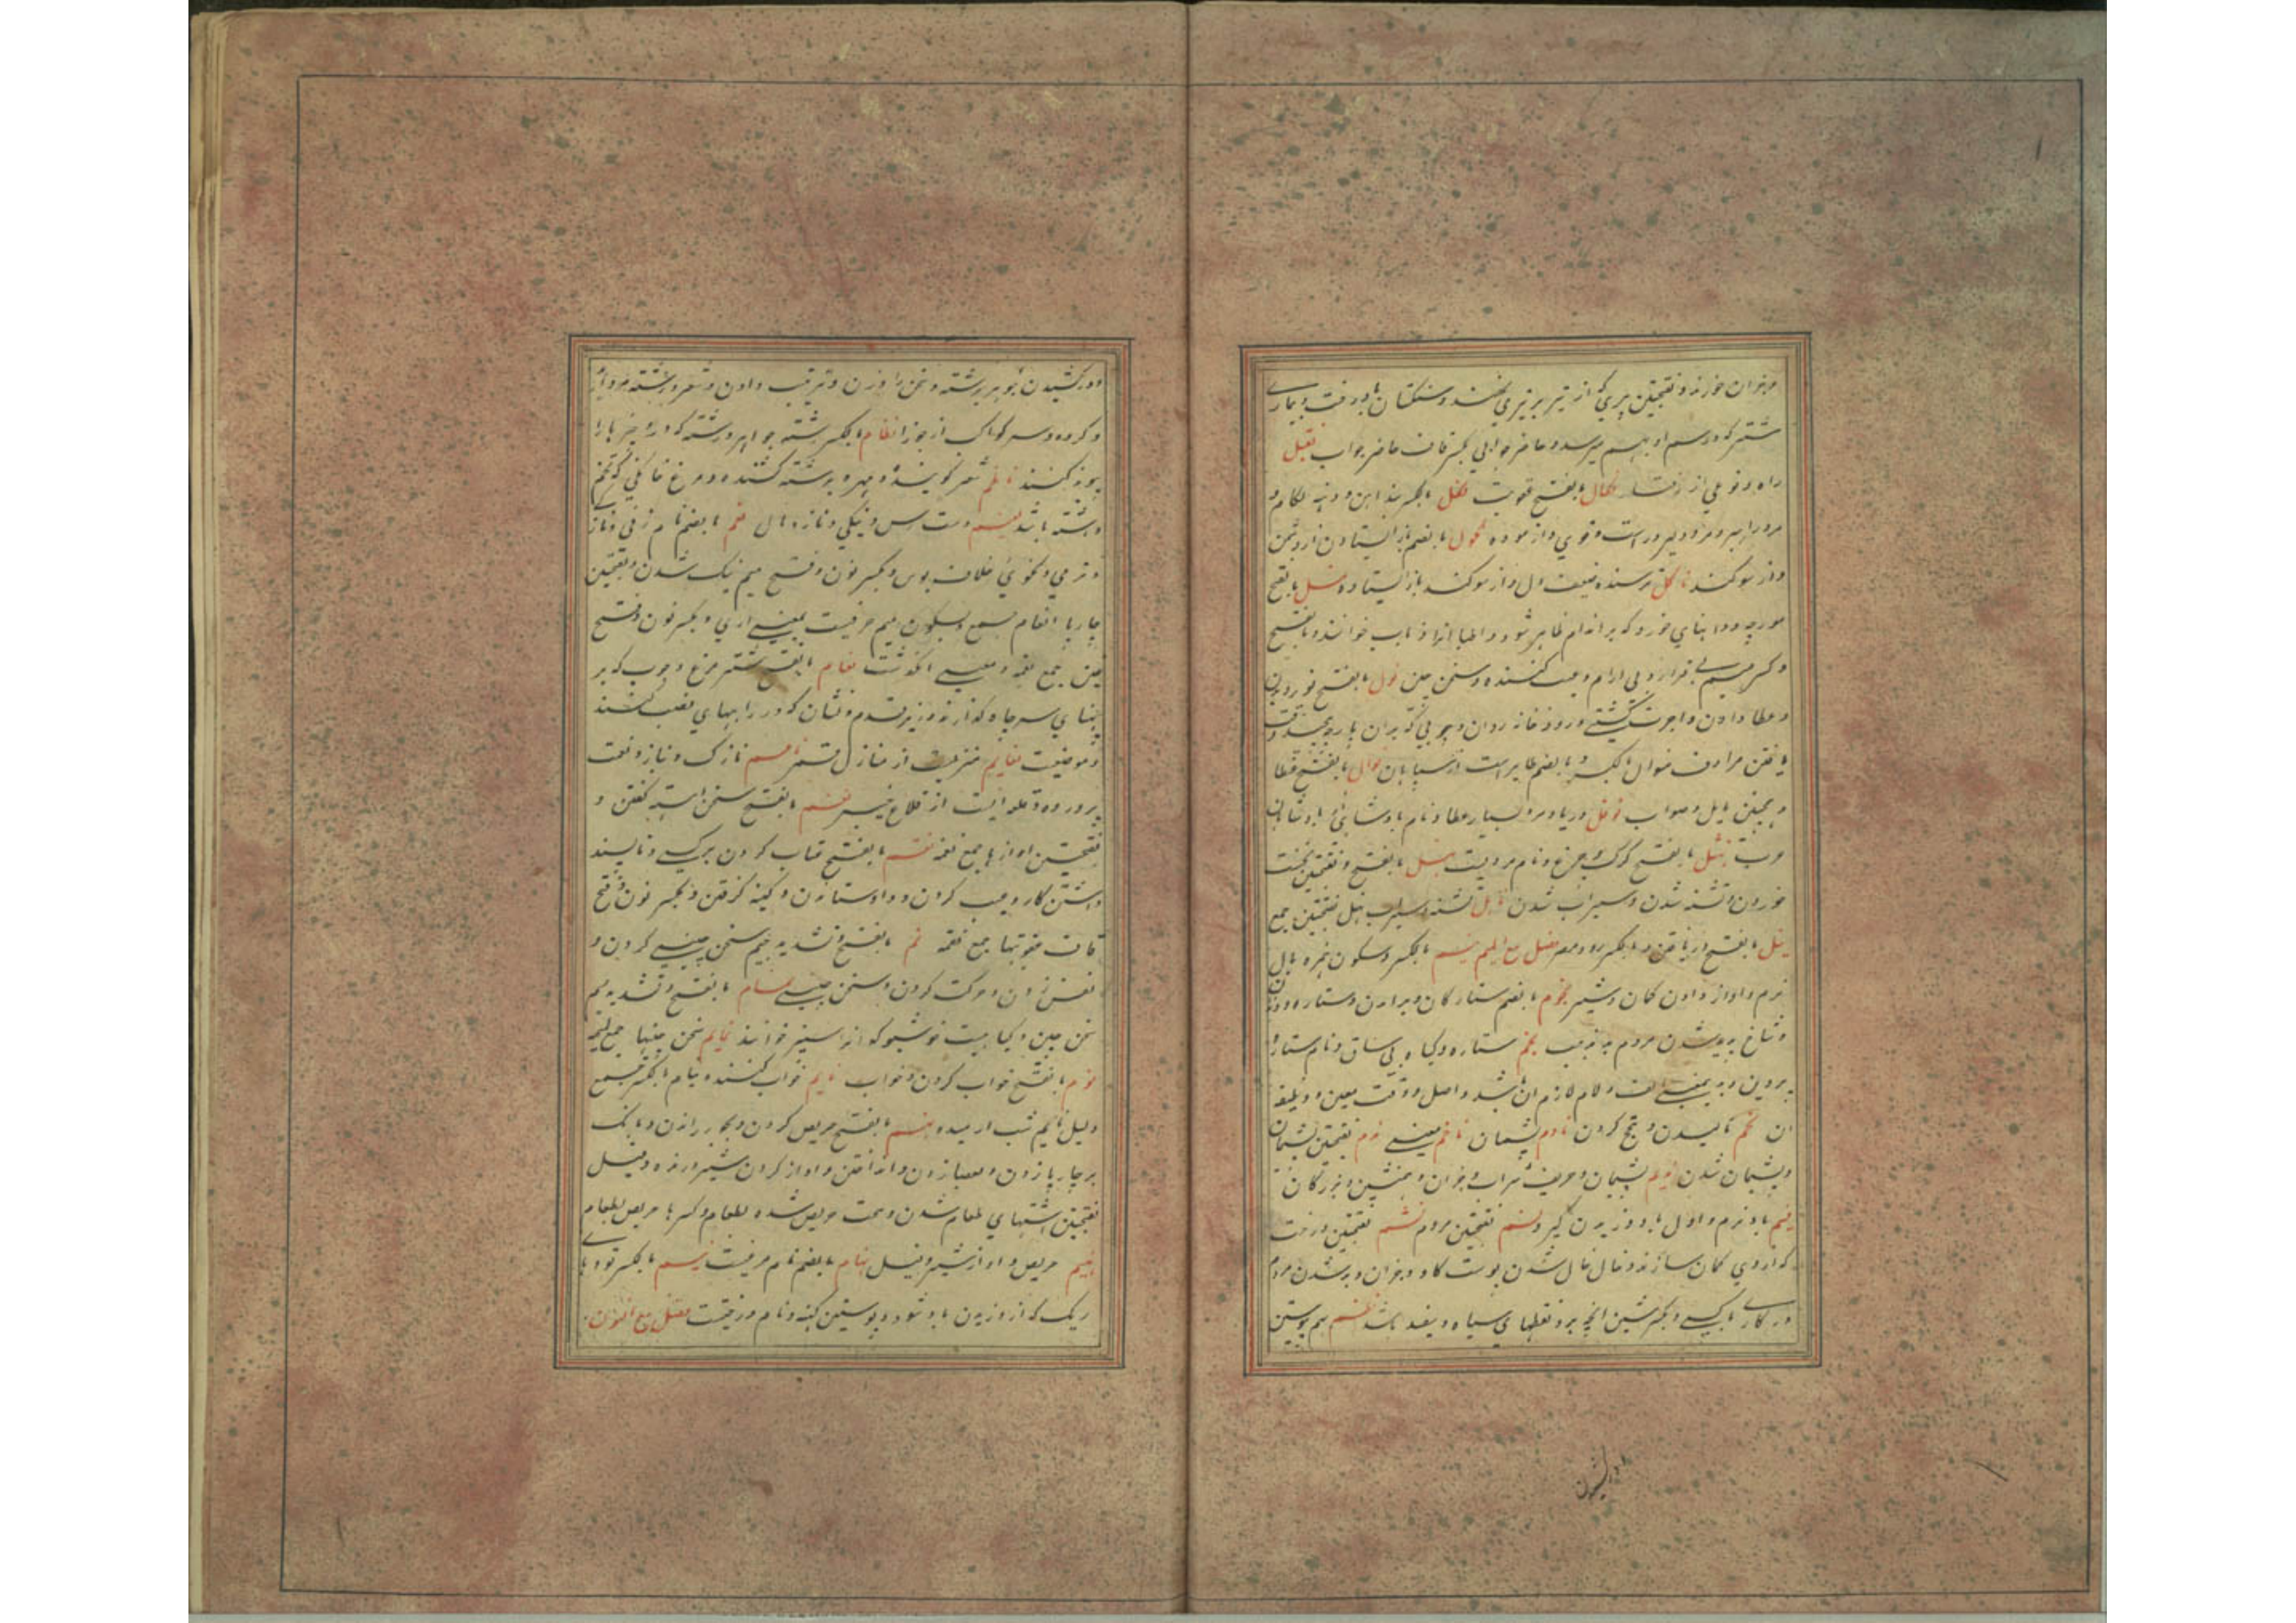 و بخوان خورند و بفتحتین پری که از تیر بر تیری نهند و سنکستان با درخت و بیماری
شتر که در سم او بهم میرسد و حاضر جوابی بکسر قاف حاضر جواب نقیل
راه و نوعی از رفتار نکال بالفتح عقوبت نکل بالکسر بند آهن و دهنه لکام و
مرد را بسر و مرد دلیر و قوی و ازموده نکول بالضم باز ایستادن از دشمن
و از سوکند ناکل ترسنده ضعیف دل و از سوکند باز ایستاده نمل بالفتح
مورچه و دانهای خورد که بر اندام ظاهر شود و اطبا انرا ذباب خوانند و بالفتح
و کسر میم بی قرار و بی ارام و عیب کننده و سخن چین نول بالفتح
و عطا دادن و اجرت کشتی و رودخانه روان و چوبی که بران پارچه
یافتن مرادف منوال بالکسر و بالضم طایریست از بیابان نوال بالفتح عطا
و همچنین نایل و صواب نوفل دریا و مرد بسیار عطا و نام پادشاهی
عرب نهشل بالفتح کرک و چرغ و نام مردیست نهل بالفتح و بفتحتین نخست
خوردن و تشنه شدن و سیراب شدن ناهل تشنه و سیراب نهل بفتحتین جمع
نیل بالفتح دریافتن و بالکسر رود مصر فصل مع المیم نیم بالکسر و سکون همزه
نرم و اواز دادن کمان و شیر نجوم بالضم ستارکان و برامدن ستاره و دندان
و شاخ و پدید شدن مردم بد مذهب نجم ستاره و کیاه بی ساق و نام ستاره
پروین و بدین معنی الف و لام لازم ان باشد و اصل و وقت معین و وظیفه
ان نحم نالیدن و تنحنح کردن نادم پشیمان ناخم معنی ندم بفتحتین پشیمان
و پشیمان شدن ندیم پشیمان و حریف شراب و بخوان و همنشین بزرکان
نسیم باد نرم و اول باد وزیدن کیرد نسم بفتحتین مردم نشم بفتحتین درخت
که ازوی کمان سازند و خال خال شدن پوست کاو و بخوان و بد شدن مردم
در کاری با کسی و بکسر شین انچه برو نقطهای سیاه و سفید باشد نظم بهم پیوستن
و در کشیدن جوهر برشته و سخن را وزن و ترتیب دادن و شعر و رشته مروارید
و کروه و سه کوکب از جوزا نظام بالکسر رشته جواهر و رشته که درو چیزها را
پیوند کنند ناظم شعر کوینده و مهره برشته کشنده و مرغ خانکی که تخم
داشته باشد نعیم دسترس و نیکی و ناز و مال نعم بالضم نام زنی و ناز
و نرمی و نکوئی خلاف بوس و بکسر نون و فتح میم نیک شدن و بفتحتین
چارپا انعام جمع و بسکون میم حرفیست بمعنی اری و بکسر نون و فتح
عین جمع نعمه و معنی ان کذشت نعام بالفتح شتر مرغ و چوب که بر
پنهای سر چاه کذارند و زیر قدم و نشان که در راههای نصب کنند
و موضعیست نعایم منزلیست از منازل قمر ناعم نازک و ناز و نعمت
پرورده و قلعه ایست از قلاع خیبر نغم بالفتح سخن اهسته کفتن و
بفتحتین اوازها جمع نغمه نقم بالفتح عتاب کردن بر کسی و ناپسند
داشتن کار و عیب کردن و داد ستاندن و کینه کرفتن و بکسر نون و فتح
قاف عقوبتها جمع نقمه نم بالفتح و تشدید میم سخن چینی کردن و
نفس زدن و حرکت کردن و سخن چینی نمام بالفتح و تشدید میم
سخن چین و کیاهیست خوشبو که انرا سیسنبر خوانند نمایم سخن چینیها جمع نمیمه
نوم بالفتح خواب کردن و خواب نایم خواب کننده نیام بالکسر جمع
و لیل نایم شب ارمیده نهم بالفتح حریص کردن و بجد راندن و بانک
بر چارپا زدن و بعصا زدن و انداختن و اواز کردن شیر درنده و فیل
بفتحتین اشتهای طعام شدن و سخت حریص شدن بطعام و بکسر ها حریص بطعام
نهیم حریص و اواز شیر و فیل نهام بالضم نام مرغیست نیم بالکسر تودهای
ریک که از وزیدن باد شود و پوستین کهنه و نام درختیست فصل مع النون